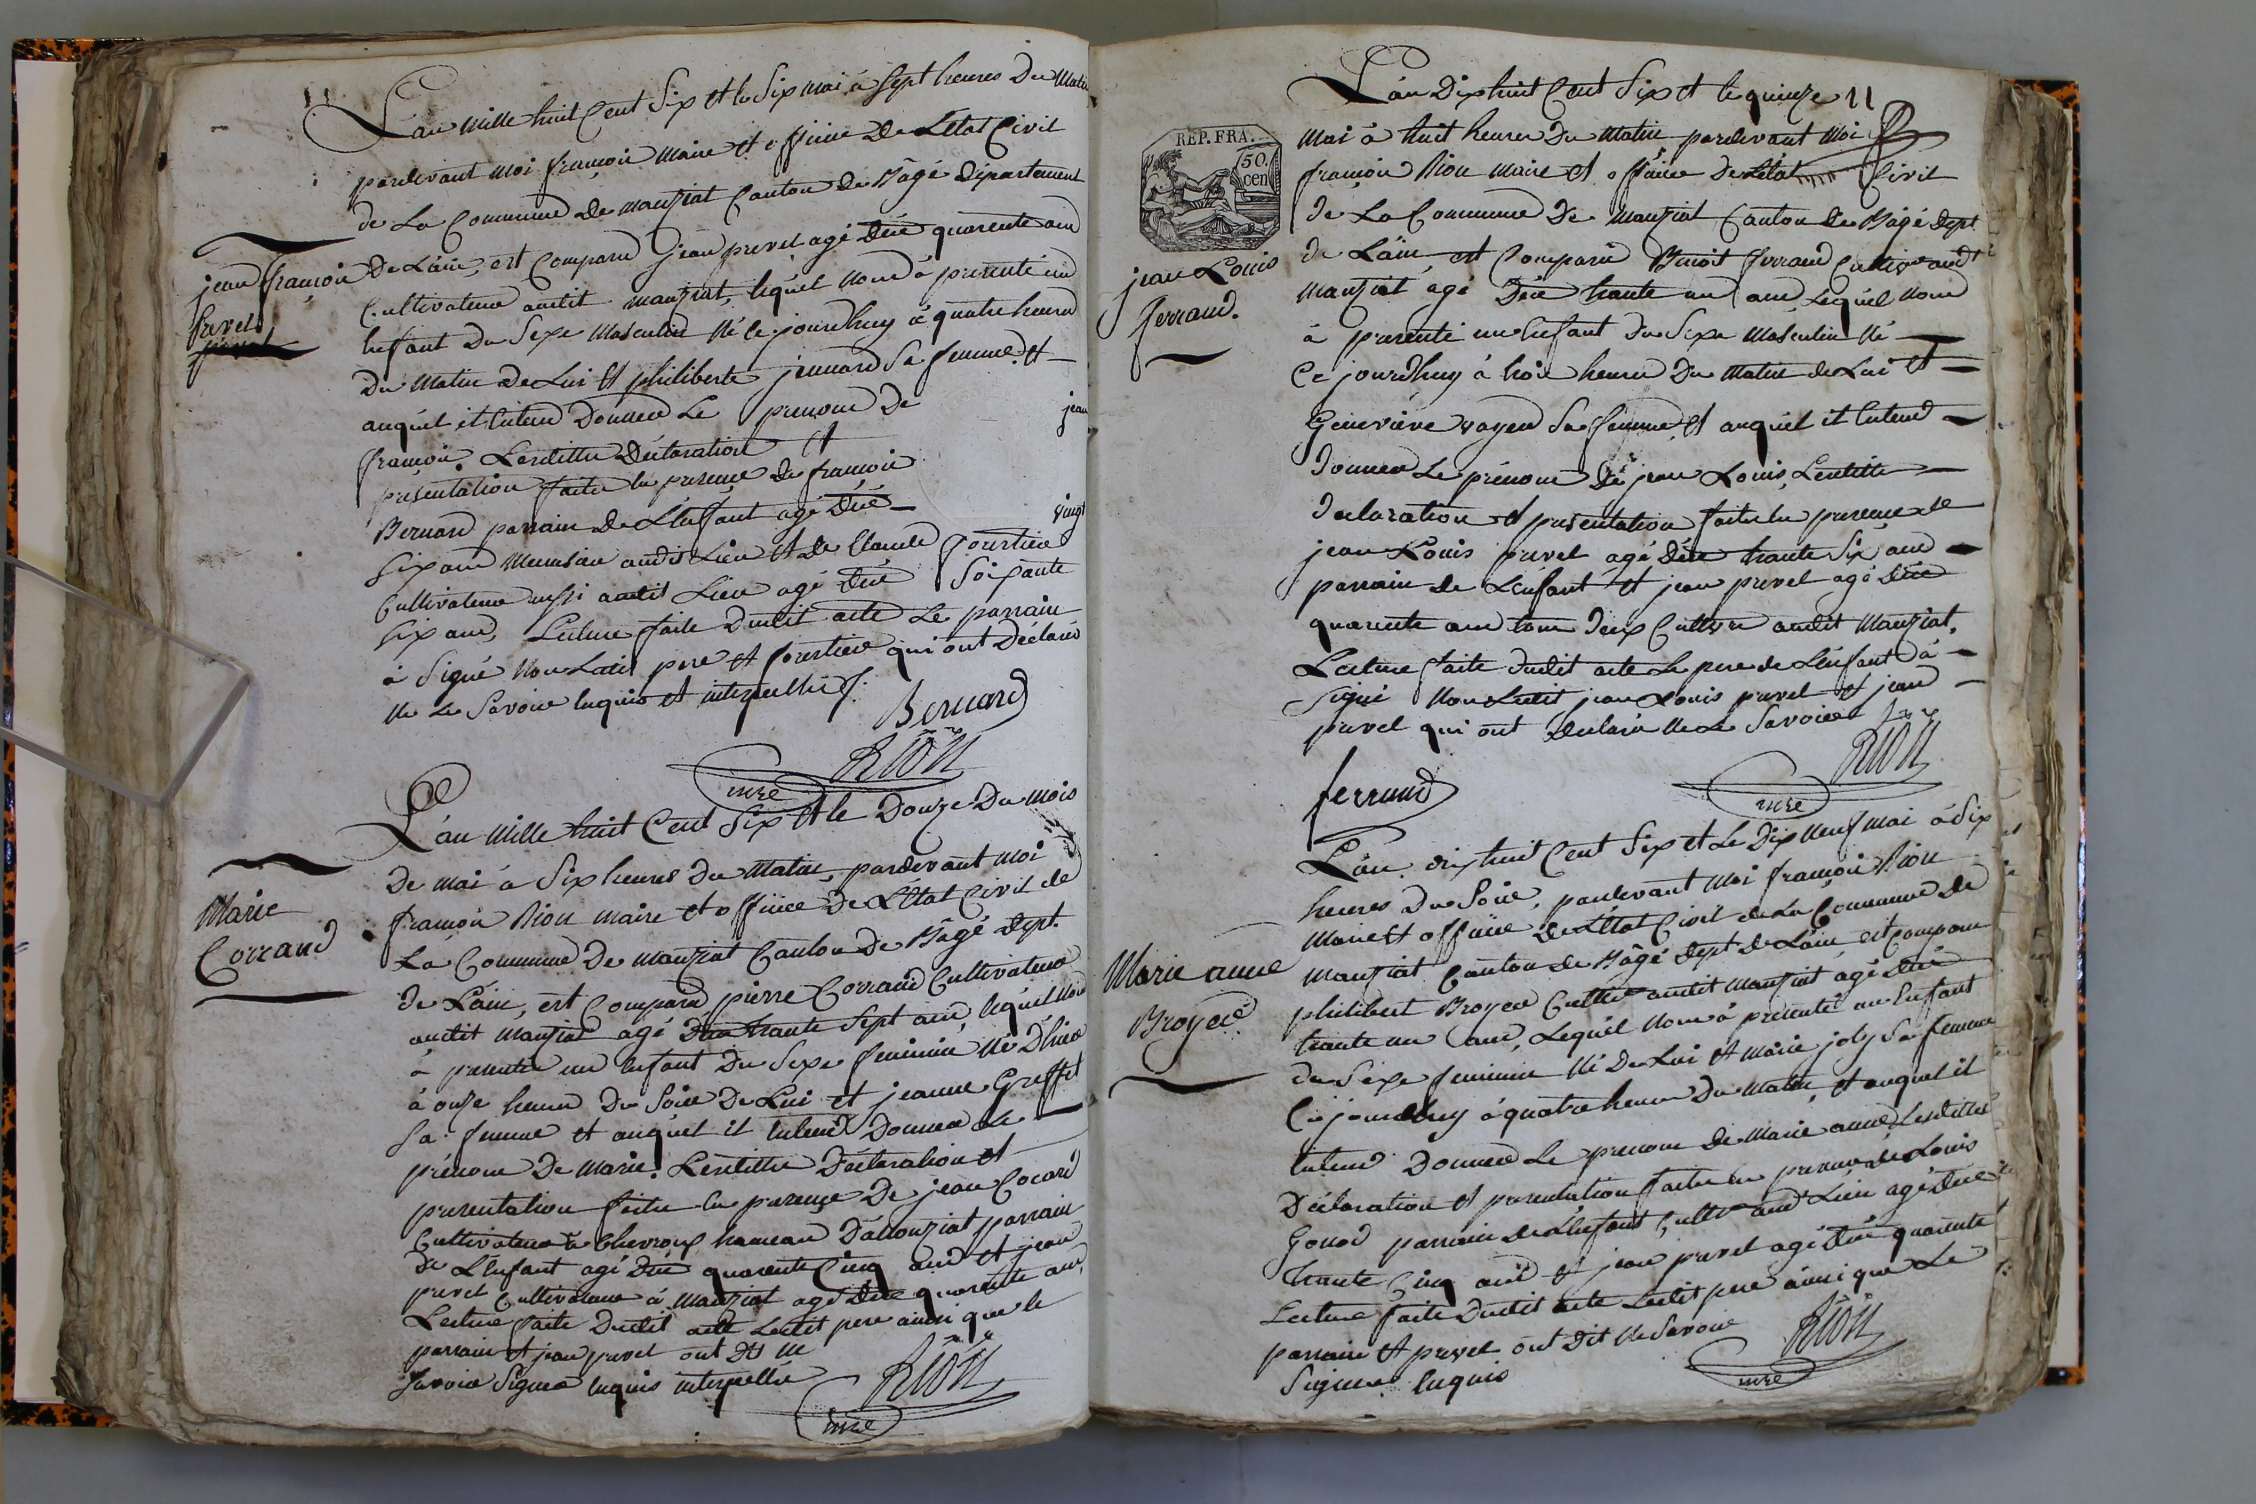 L'an mille huit Cent Six et le Six mai à Sept heures du Matin
pardevant moi françois maire et officier De L'état Civil
de La Commune De manziat Canton de Bâgé département
De L'ain, est Comparu jean pevet agé quarente ans
Cultivateur audit manziat, lequel nous à presenté un
Enfant du Sexe Masculin né ce jourdhuy à quatre heures
Du Matin de Lui et philiberte jannard Sa femme et
auquel il Entend Donner Le prenom De jean
françois. Lesdittes Déclaration et
présentation faites En presence de françois
Bernard parrain De L'Enfant agé De vingt
Six ans audit Lieu et de Claude fourtier
Cultivateur aussi audit Lieu agé Soixante
Six ans, Lecture faite Dudit acte Le parrain
à Signé Non Ledit pere et fourtier qui ont Déclaré
ne Le Savoir Enquis et interpellés
jean françois
pevet
Bernard
Rion
mre
L'an mille huit Cent Six et le Douze Du mois
De mai à Six heures du Matin, pardevant moi
françois Rion maire et officier De L'état Civil de
La Commune De manziat Canton De Bâgé dept.
de L'ain, est Comparu pierre Corrand Cultivateur
audit manziat agé trente Sept ans, lequel nous
à presenté un Enfant Du Sexe feminin né D'hier
à onze heures Du Soir De Lui et jeanne Greffet
Sa femme et auquel il Entend Donner Le
prénom De Marie. Lesdittes Déclaration et
presentation faites En presence De jean Cocard
Cultivateur à Chevroux hameau parrain
de L'Enfant agé quarente Cinq ans et jean
pevet Cultivateur à Manziat agé quarente ans,
Lecture faite Dudit acte Ledit pere ainsi que le
parrain et jean pevet ont Dit ne
Savoir Signer Enquis interpellés
Marie
Corrand
Rion
mre
L'an Dix huit Cent Six et le quinze 11
mai à huit heures Du Matin pardevant Moi
françois Rion maire et officier De L'état Civil
de La Commune De Manziat Canton de Bâgé dept
de L'ain, est Comparu Benoit ferrand audt
Manziat agé trente un ans Lequel nous
à presenté un Enfant du Sexe Masculin né
Ce jourdhuy à trois heures Du Matin de Lui et
Genevieve voyer Sa femme, et auquel il Entend
Donner Le prénom De jean Louis, Lesdittes
declaration et présentation faites En presence de
jean Louis pevet agé trente Six ans
parrain de L'enfant et jean pevet agé
quarente ans tous deux audit Manziat.
Lecture faite dudit acte Le pere de L'enfant à
Signé Non Ledit jean Louis pevet et jean
pevet qui ont Declaré ne Le Savoir
REP. FRA.
50.
cen
jean Louis
ferrand.
ferrand
Rion
mre
L'an dix huit Cent Six et Le Dix Neuf mai à Six
heures Du Soir, pardevant moi françois Rion
Maire et officier de L'état Civil de La Commune de
manziat Canton de Bâgé dept de L'ain est Comparu
philibert Broyer audit manziat agé
trente un ans, Lequel nous à presenté un Enfant
du Sexe feminin né De Lui et Marie joly Sa femme
Ce jourdhuy à quatre heures Du Matin, et auquel il
Entend Donner Le prenom de Marie anne, Lesdittes
Déclaration et presentation faites en presence de Louis
Gonod parrain de L'enfant, Cultr audt Lieu agé
trente Cinq ans et jean pevet agé quarente
Lecture faite Dudit acte Ledit pere ainsi que Le
parrain et pevet ont dit ne Savoir
Signer Enquis
Marie anne
Broyer
Rion
mre